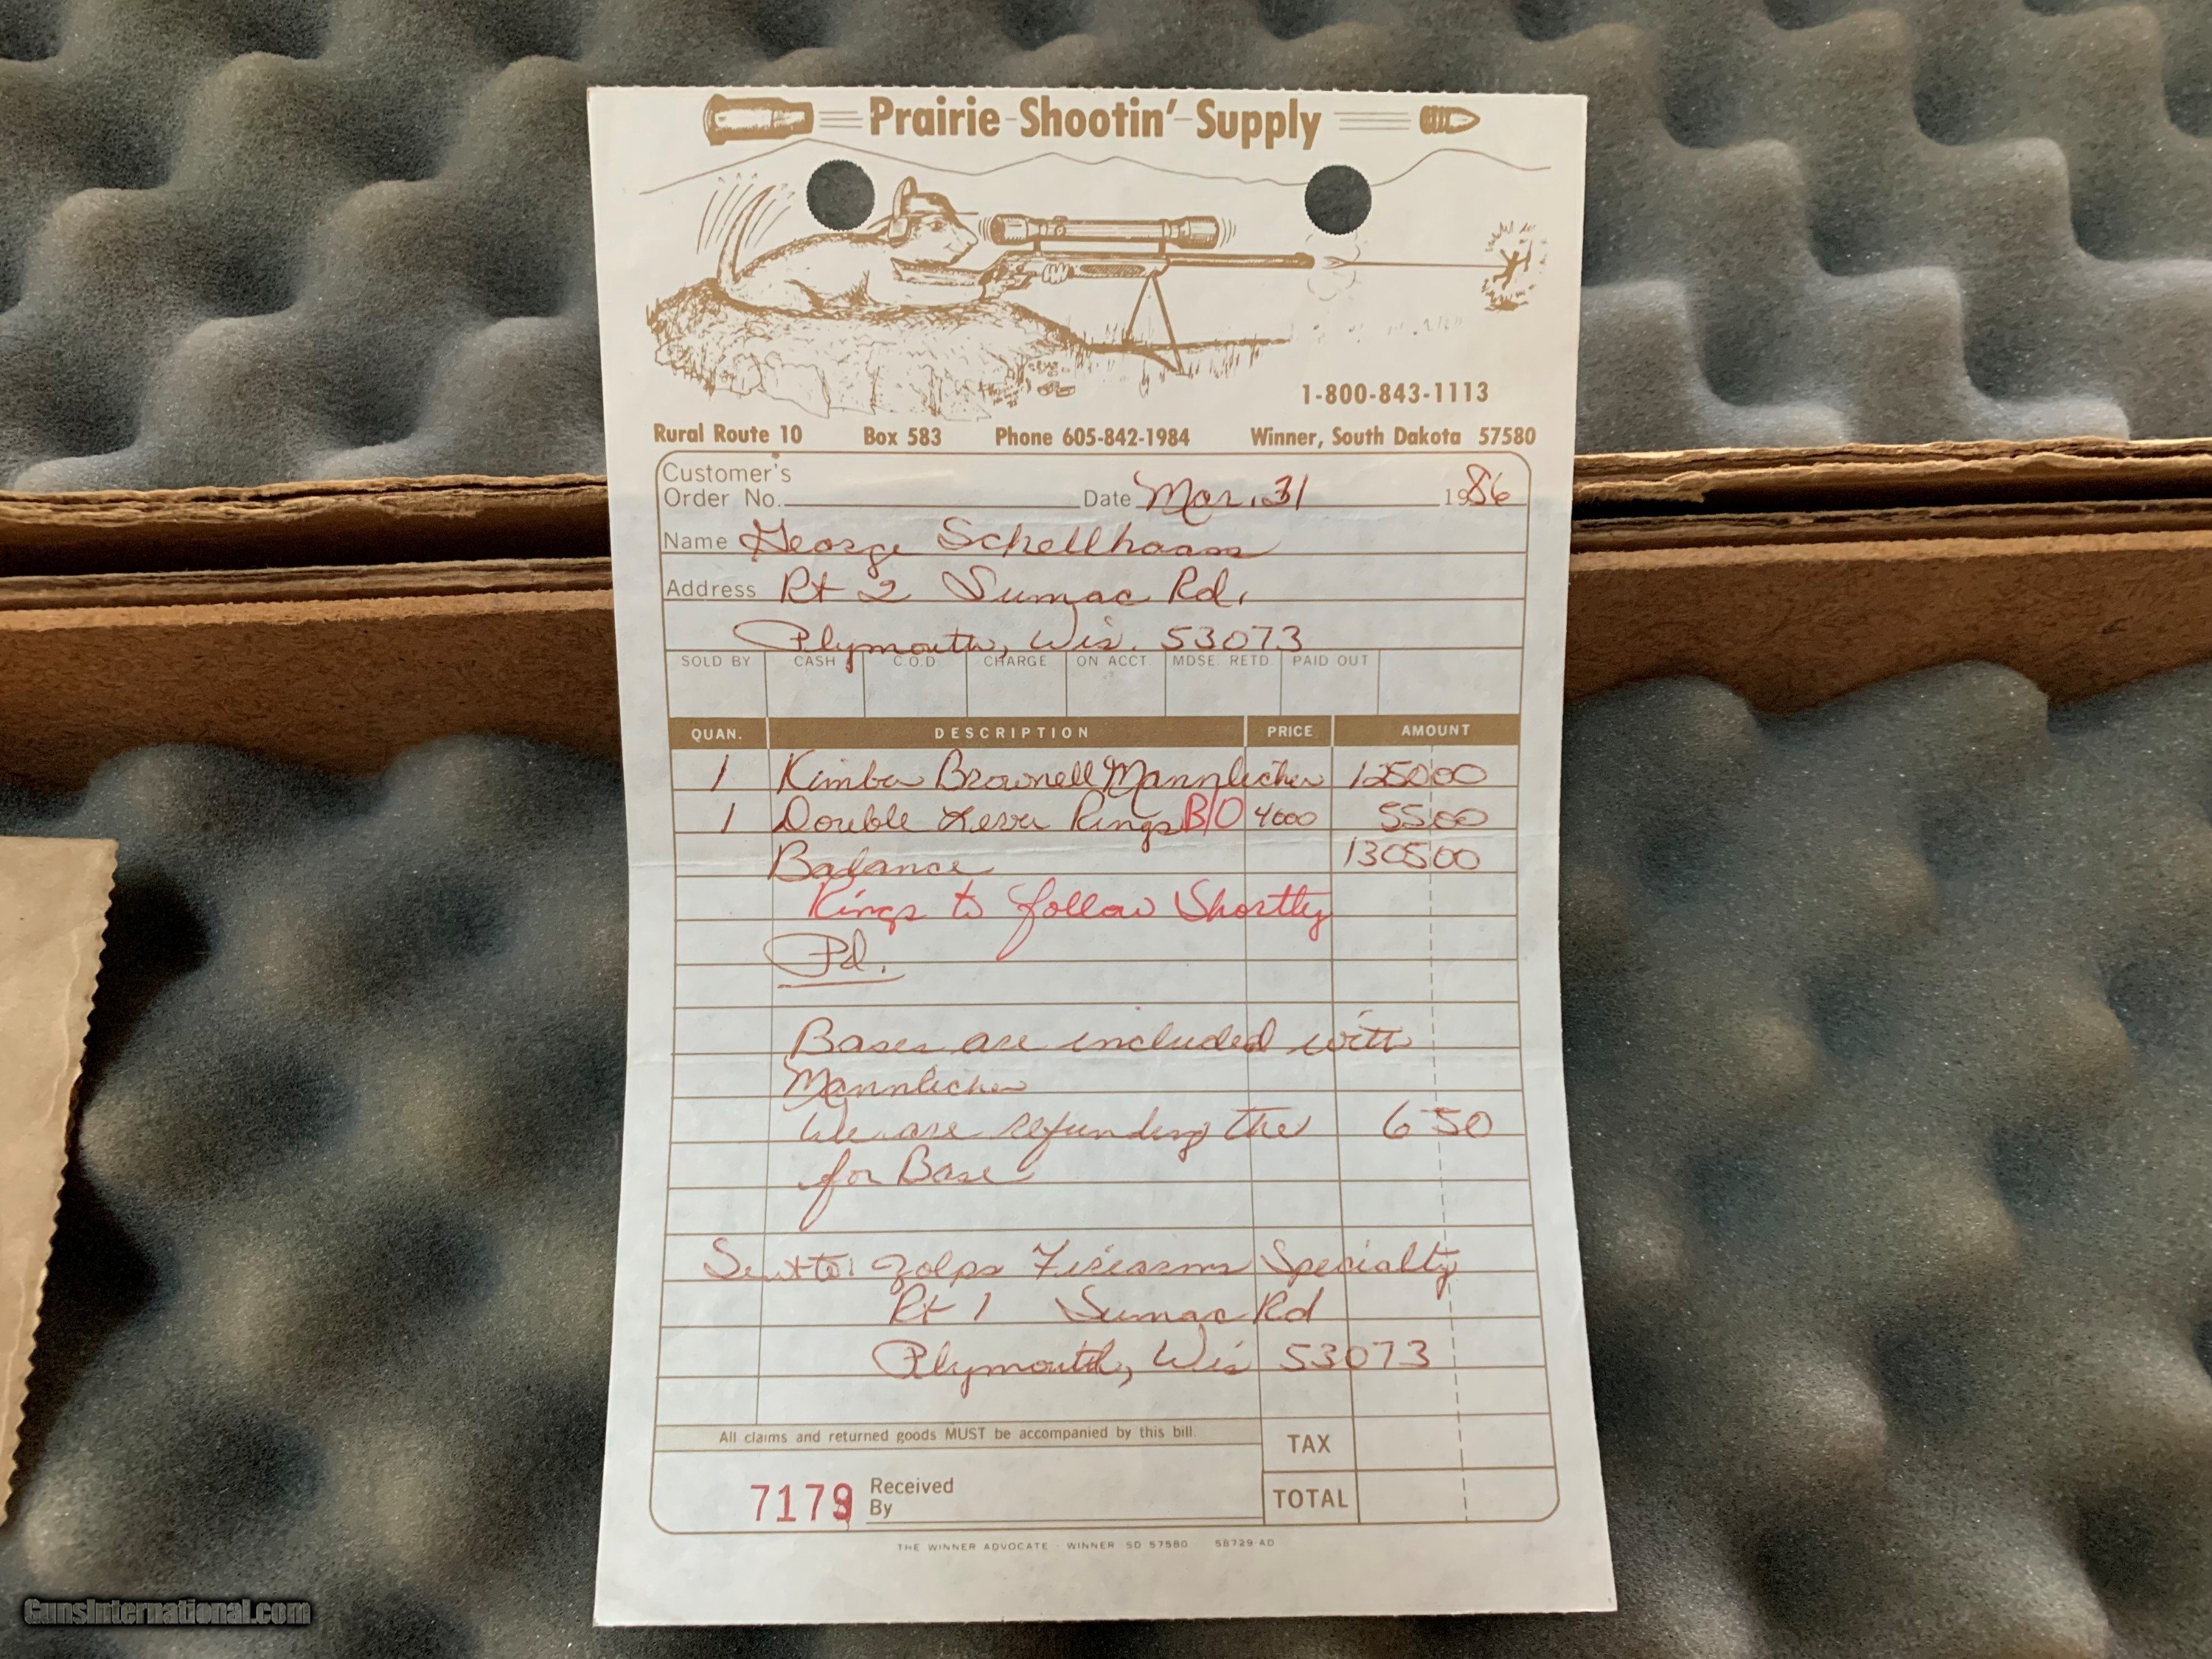 Prairie Shootin' Supply
1-800-843-1113
Rural Route 10 Box 583 Phone 605-842-1984 Winner, South Dakota 57580
Customer's
Order No. Date Mar. 31 1986
Name George Schellhaass
Address Rt 2 Sumac Rd.
Plymouth, Wis. 53073
SOLD BY CASH C.O.D. CHARGE ON ACCT. MDSE. RETD. PAID OUT
QUAN. DESCRIPTION PRICE AMOUNT
1 Kimber Brownell Mannlicher 1250 00
1 Double Lever Rings B/O 4000 55 00
Balance 1305 00
Rings to follow Shortly
Pd.
Bases are included with
Mannlicher
We are refunding the 6 50
for Base
Sent to: Firearms Specialty
Rt 1 Sumac Rd
Plymouth, Wis 53073
All claims and returned goods MUST be accompanied by this bill.
TAX
7179 Received
By
TOTAL
THE WINNER ADVOCATE - WINNER SD 57580 58729-AD
GunsInternational.com